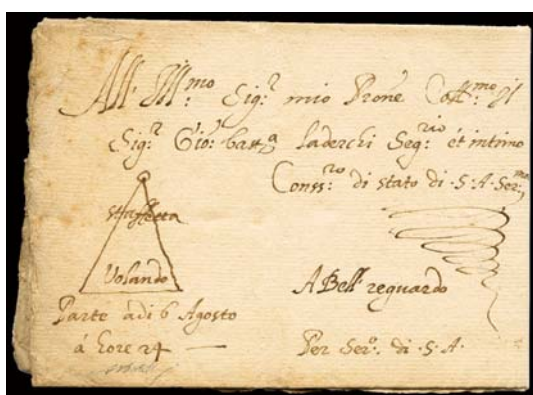 All' Ill:mo Sig:r mio Prone Coll:mo il
Sig:r Gio: batta Laderchi Seg:rio et intimo
Cons:ro di stato di S. A. Ser:ma
staffetta
Volando
A Bell reguardo
Parte adi 6 Agosto
á hore 24
Per Ser:o di S. A.